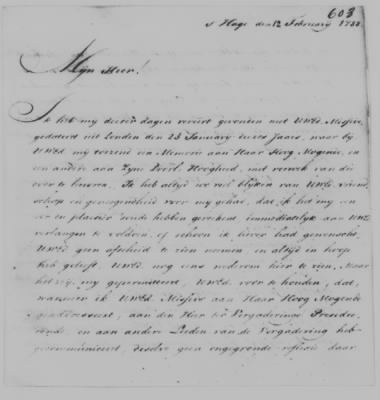 603
s Hage den 12 February 1788
Myn Heer!
Ik heb my deezer dagen vereert gevonden met UWEd. Missive,
gedateert uit Londen den 25 January deezes Jaars, waar by
UWEd. my toezend een Memorie aan Haar Hoog Mogende, en
een andere aan Zyne Doorl. Hoogheid, met verzoek van die
over te leveren. Ik heb altyd zo veel blyken van UWEd. vriend-
schap en genegendheid voor my gehad, dat ik het my een
eer en plaisir zoude hebben gerekend immediatelyk aan UWEd.
verlangen te voldoen, of schoon ik liever had gewenscht,
UWEd. geen afscheid te zien neemen, en altyd in hoop
heb geleeft, UWEd. nog eens wederom hier te zien, Maar
het zy my gepermitteert, UWEd. voor te houden, dat,
wanneer ik UWEd. Missive aan Haar Hoog Mogende
geaddresseert, aan den Heer ter Vergaderinge Presidee-
rende en aan andere Leden van de Vergadering heb
gecommuniceert, dezelve geen ongegronde reflexie daar